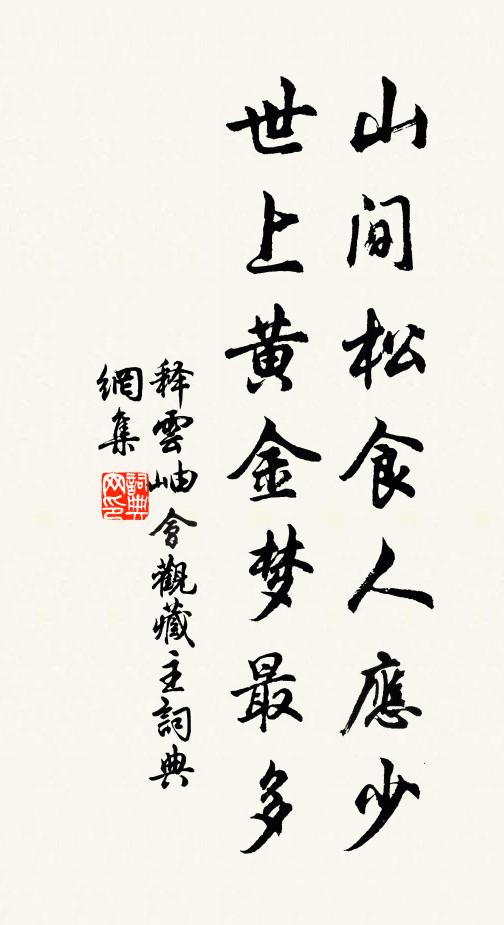 山间松食人應少
世上黄金梦最多
释雲岫會觀藏主詞典
網集
詞典
网印